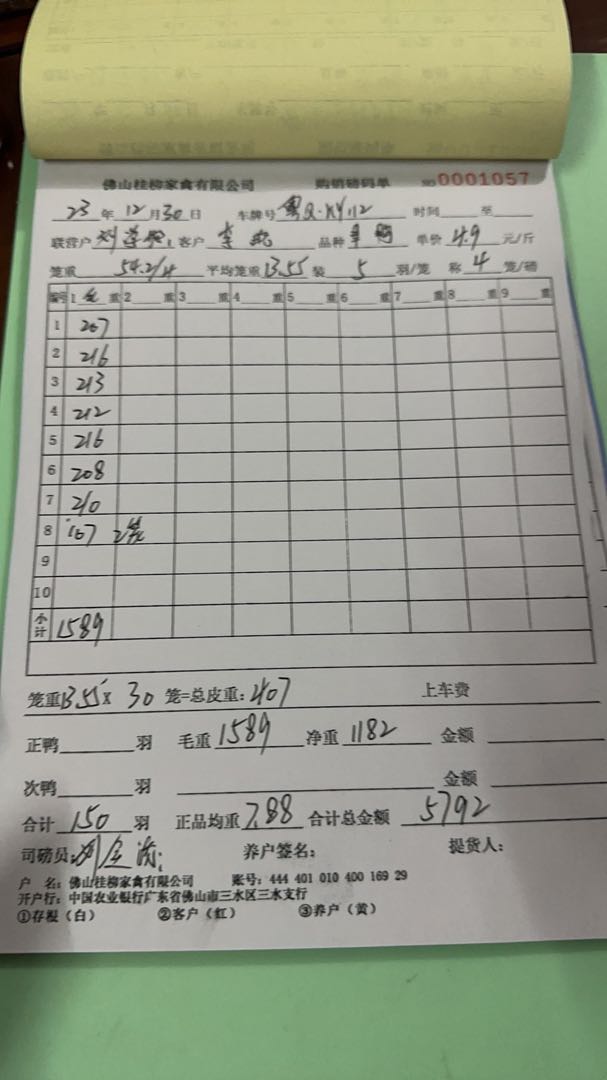 佛山桂柳家禽有限公司 购销磅码单 NO 0001057
23 年 12 月 30 日 车牌号 粤Q·KY112 时间 至
联营户 客户 李 品种 单价 4.9 元/斤
笼重 54.2/4 平均笼重 13.55 装 5 羽/笼 称 4 笼/磅
编号 1 重 2 重 3 重 4 重 5 重 6 重 7 重 8 重 9 重
1 207
2 216
3 213
4 212
5 216
6 208
7 210
8 107 2笼
9
10
小计 1589
笼重 13.55 x 30 笼=总皮重: 407 上车费
正鸭 羽 毛重 1589 净重 1182 金额
次鸭 羽 金额
合计 150 羽 正品均重 7.88 合计总金额 5792
司磅员: 刘 养户签名: 提货人:
户 名: 佛山桂柳家禽有限公司 账号: 444 401 010 400 169 29
开户行: 中国农业银行广东省佛山市三水区三水支行
①存根(白) ②客户(红) ③养户(黄)